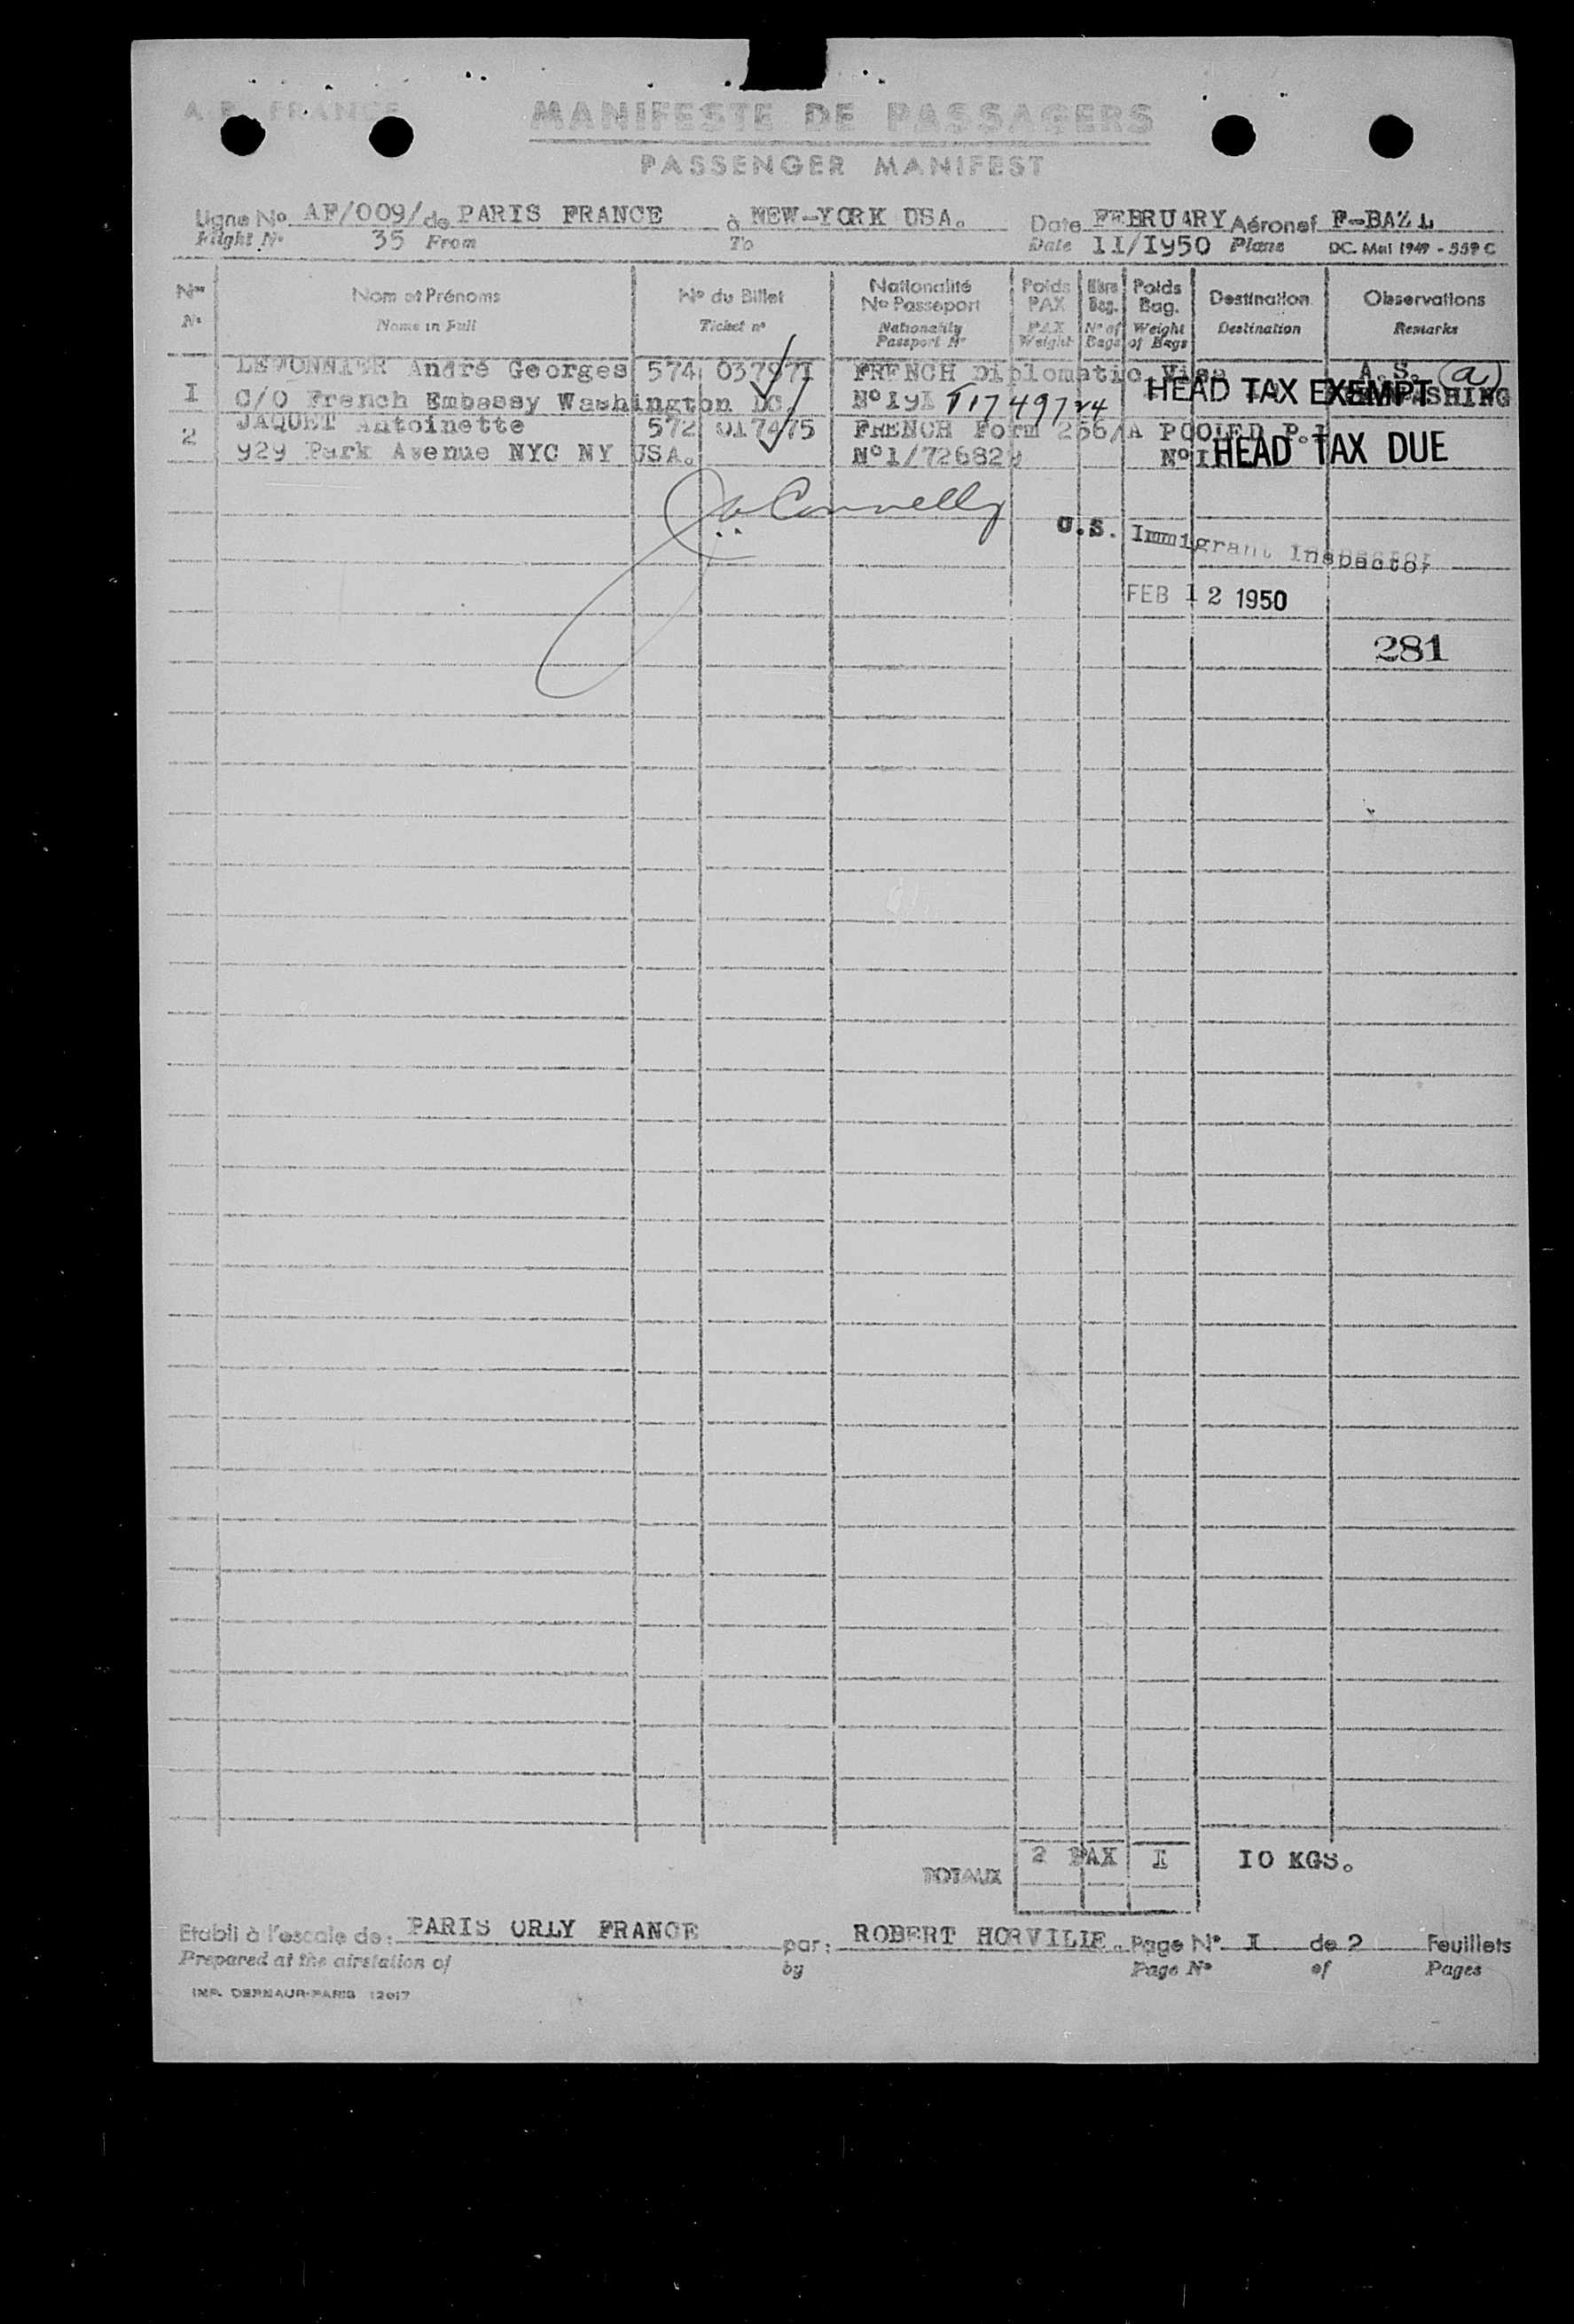 AIR FRANCE
MANIFESTE DE PASSAGERS
PASSENGER MANIFEST
Ligne No AF/009/ de PARIS FRANCE à NEW-YORK USA. Date FEBRUARY Aéronef F-BAZL
Flight No 35 From To Date 11/I950 Plane DC. Mai 1949 - 559 C
Nos Nom et Prénoms No du Billet Nationalité No Passeport Poids PAX Nbre Bag. Poids Bag. Destination Observations
No Name in Full Ticket no Nationality Passport No PAX Weight No of Bags Weight of Bags Destination Remarks
LEMONNIER André Georges 574 FRENCH Diplomatic Visa A.S. (a)
I C/O French Embassy Washington DC. No I9I HEAD TAX EXEMPT
2 JAQUET Antoinette 572 017475 FRENCH Form 256/A POOLED P.
929 Park Avenue NYC NY USA. No1/726829 NoI HEAD TAX DUE
Connelly
U.S. Immigrant Inspector
FEB 12 1950
281
TOTAUX 2 PAX I IO KGS.
Etabli à l'escale de: PARIS ORLY FRANCE par: ROBERT HORVILLE. Page No I de 2 Feuillets
Prepared at the airstation of by Page No of Pages
IMP. DERNAUR-PARIS 12017